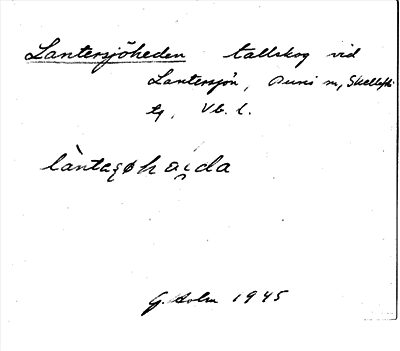 Lantersjöheden tallskog vid
Lantersjön, Buri m, Skellefte
tg, Vb. l.
làntaṣøhai̯da
G. Holm 1945